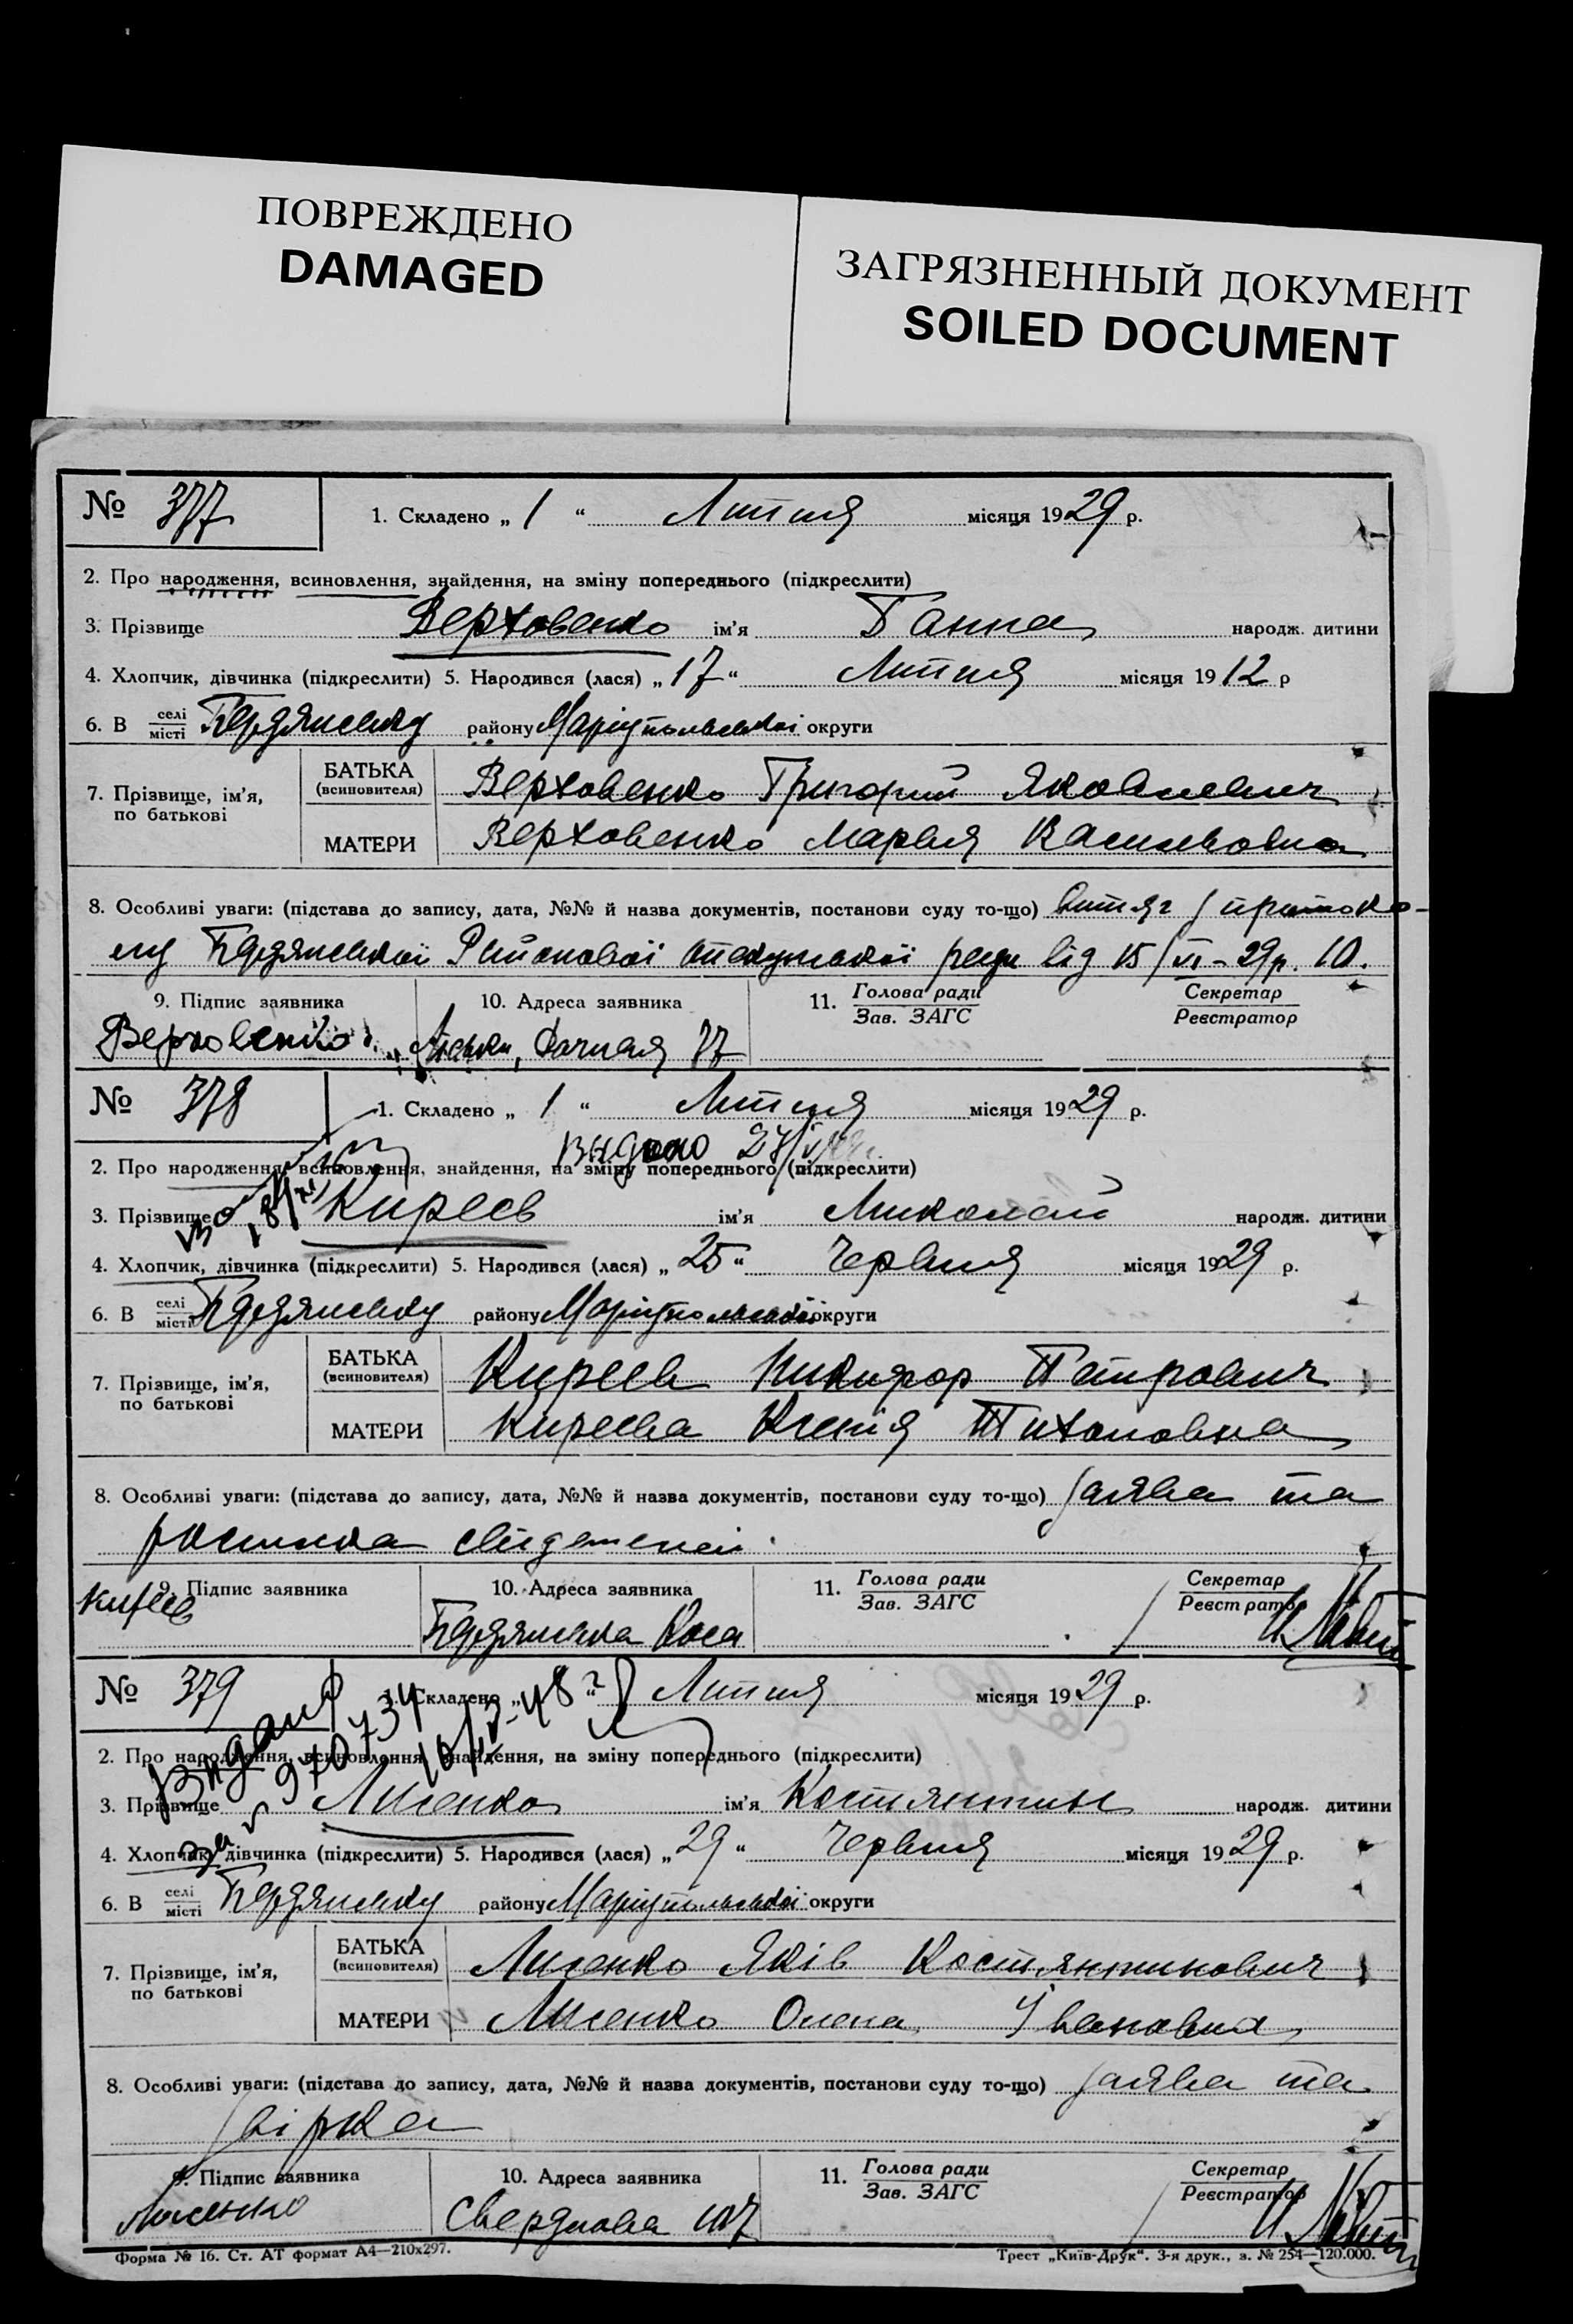 ПОВРЕЖДЕНО
DAMAGED
ЗАГРЯЗНЕННЫЙ ДОКУМЕНТ
SOILED DOCUMENT
№ 377 1. Складено „ 1 “ Липня місяця 1929 р.
2. Про народження, всиновлення, знайдення, на зміну попереднього (підкреслити)
3. Прізвище Верховенко ім'я Ганна народж. дитини
4. Хлопчик, дівчинка (підкреслити) 5. Народився (лася) „ 17 “ Липня місяця 1912 р
6. В селі/місті Бердянську району Маріупольської округи
7. Прізвище, ім'я, по батькові
БАТЬКА (всиновителя) Верховенко Григорий Яковлевич
МАТЕРИ Верховенко Мария Касильовна
8. Особливі уваги: (підстава до запису, дата, №№ й назва документів, постанови суду то-що) Витяг з протоко-
лу Бердянської Районової опекунської ради від 15/VI-29р. 10.
9. Підпис заявника 10. Адреса заявника 11. Голова ради/Зав. ЗАГС Секретар/Реєстратор
Верховенко Дачная 77
№ 378 1. Складено „ 1 “ Липня місяця 1929 р.
Выдано
2. Про народження, всиновлення, знайдення, на зміну попереднього (підкреслити)
3. Прізвище Киреєв ім'я Миколай народж. дитини
4. Хлопчик, дівчинка (підкреслити) 5. Народився (лася) „ 25 “ Червня місяця 1929 р.
6. В селі/місті Бердянську району Маріупольської округи
7. Прізвище, ім'я, по батькові
БАТЬКА (всиновителя) Киреев Никифор Петрович
МАТЕРИ Киреева Ксенія Тихоновна
8. Особливі уваги: (підстава до запису, дата, №№ й назва документів, постанови суду то-що) заява та
росписка свідетелей.
9. Підпис заявника 10. Адреса заявника 11. Голова ради/Зав. ЗАГС Секретар/Реєстратор
Киреев Бердянська Коса
№ 379 1. Складено „ “ Липня місяця 1929 р.
Видано 970734
2. Про народження, всиновлення, знайдення, на зміну попереднього (підкреслити)
3. Прізвище Лисенко ім'я Костянтин народж. дитини
4. Хлопчик, дівчинка (підкреслити) 5. Народився (лася) „ 29 “ Червня місяця 1929 р.
6. В селі/місті Бердянську району Маріупольської округи
7. Прізвище, ім'я, по батькові
БАТЬКА (всиновителя) Лисенко Яків Костянтинович
МАТЕРИ Лисенко Олена Івановна
8. Особливі уваги: (підстава до запису, дата, №№ й назва документів, постанови суду то-що) заява та
звірка
9. Підпис заявника 10. Адреса заявника 11. Голова ради/Зав. ЗАГС Секретар/Реєстратор
Лисенко Свердлова 107
Форма № 16. Ст. АТ формат А4—210х297. Трест „Київ-Друк“. 3-я друк., з. № 254—120.000.